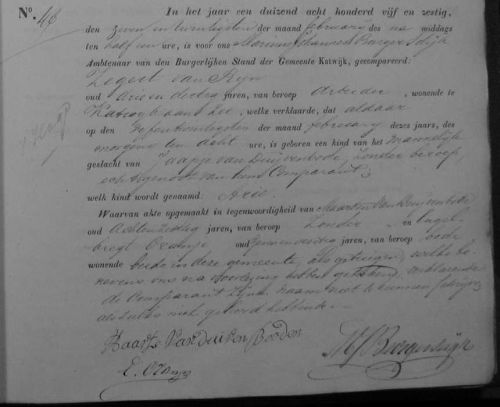 No. 46
In het jaar een duizend acht honderd vijf en zestig,
den zeven en twintigsten der maand februarij des na middags
ten half een ure, is voor ons
Ambtenaar van den Burgerlijken Stand der Gemeente Katwijk, gecompareerd:
Zegert van Rijn
oud drie en dertig jaren, van beroep Arbeider, wonende te
Katwijk aan Zee, welke verklaarde, dat aldaar
op den der maand februarij dezes jaars, des
morgens ten acht ure, is geboren een kind van het Mannelijke
geslacht van Jaapje van Duivenbode, zonder beroep
echtgenoot van hem Comparant
welk kind wordt genaamd: Arie
Waarvan akte opgemaakt in tegenwoordigheid van Maarten van Duivenbode
oud Acht en Zestig jaren, van beroep Zonder en Engel-
bregt Oranje oud jaren, van beroep
wonende beide in deze gemeente, als getuigen, welke be-
nevens ons na voorlezing hebben getekend, verklarende
de Comparant zijn naam niet te kunnen schrijven
als zulks niet geleerd hebbende.
Maarte Van duiven Booden
E. Oranje